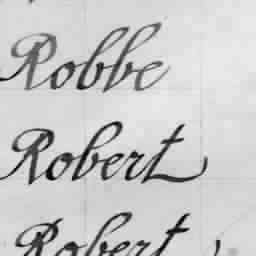 Robbe
Robert
Robert